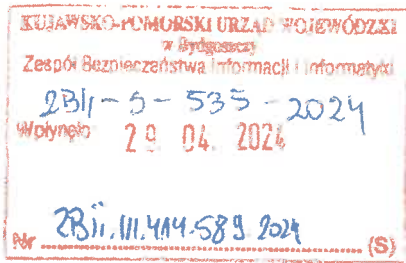 KUJAWSKO-POMORSKI URZĄD WOJEWÓDZKI
w Bydgoszczy
Zespół Bezpieczeństwa Informacji i Informatyki
ZBII-S-535-2024
Wpłynęło 29. 04. 2024
Nr ZBII.III.414.589.2024 (S)